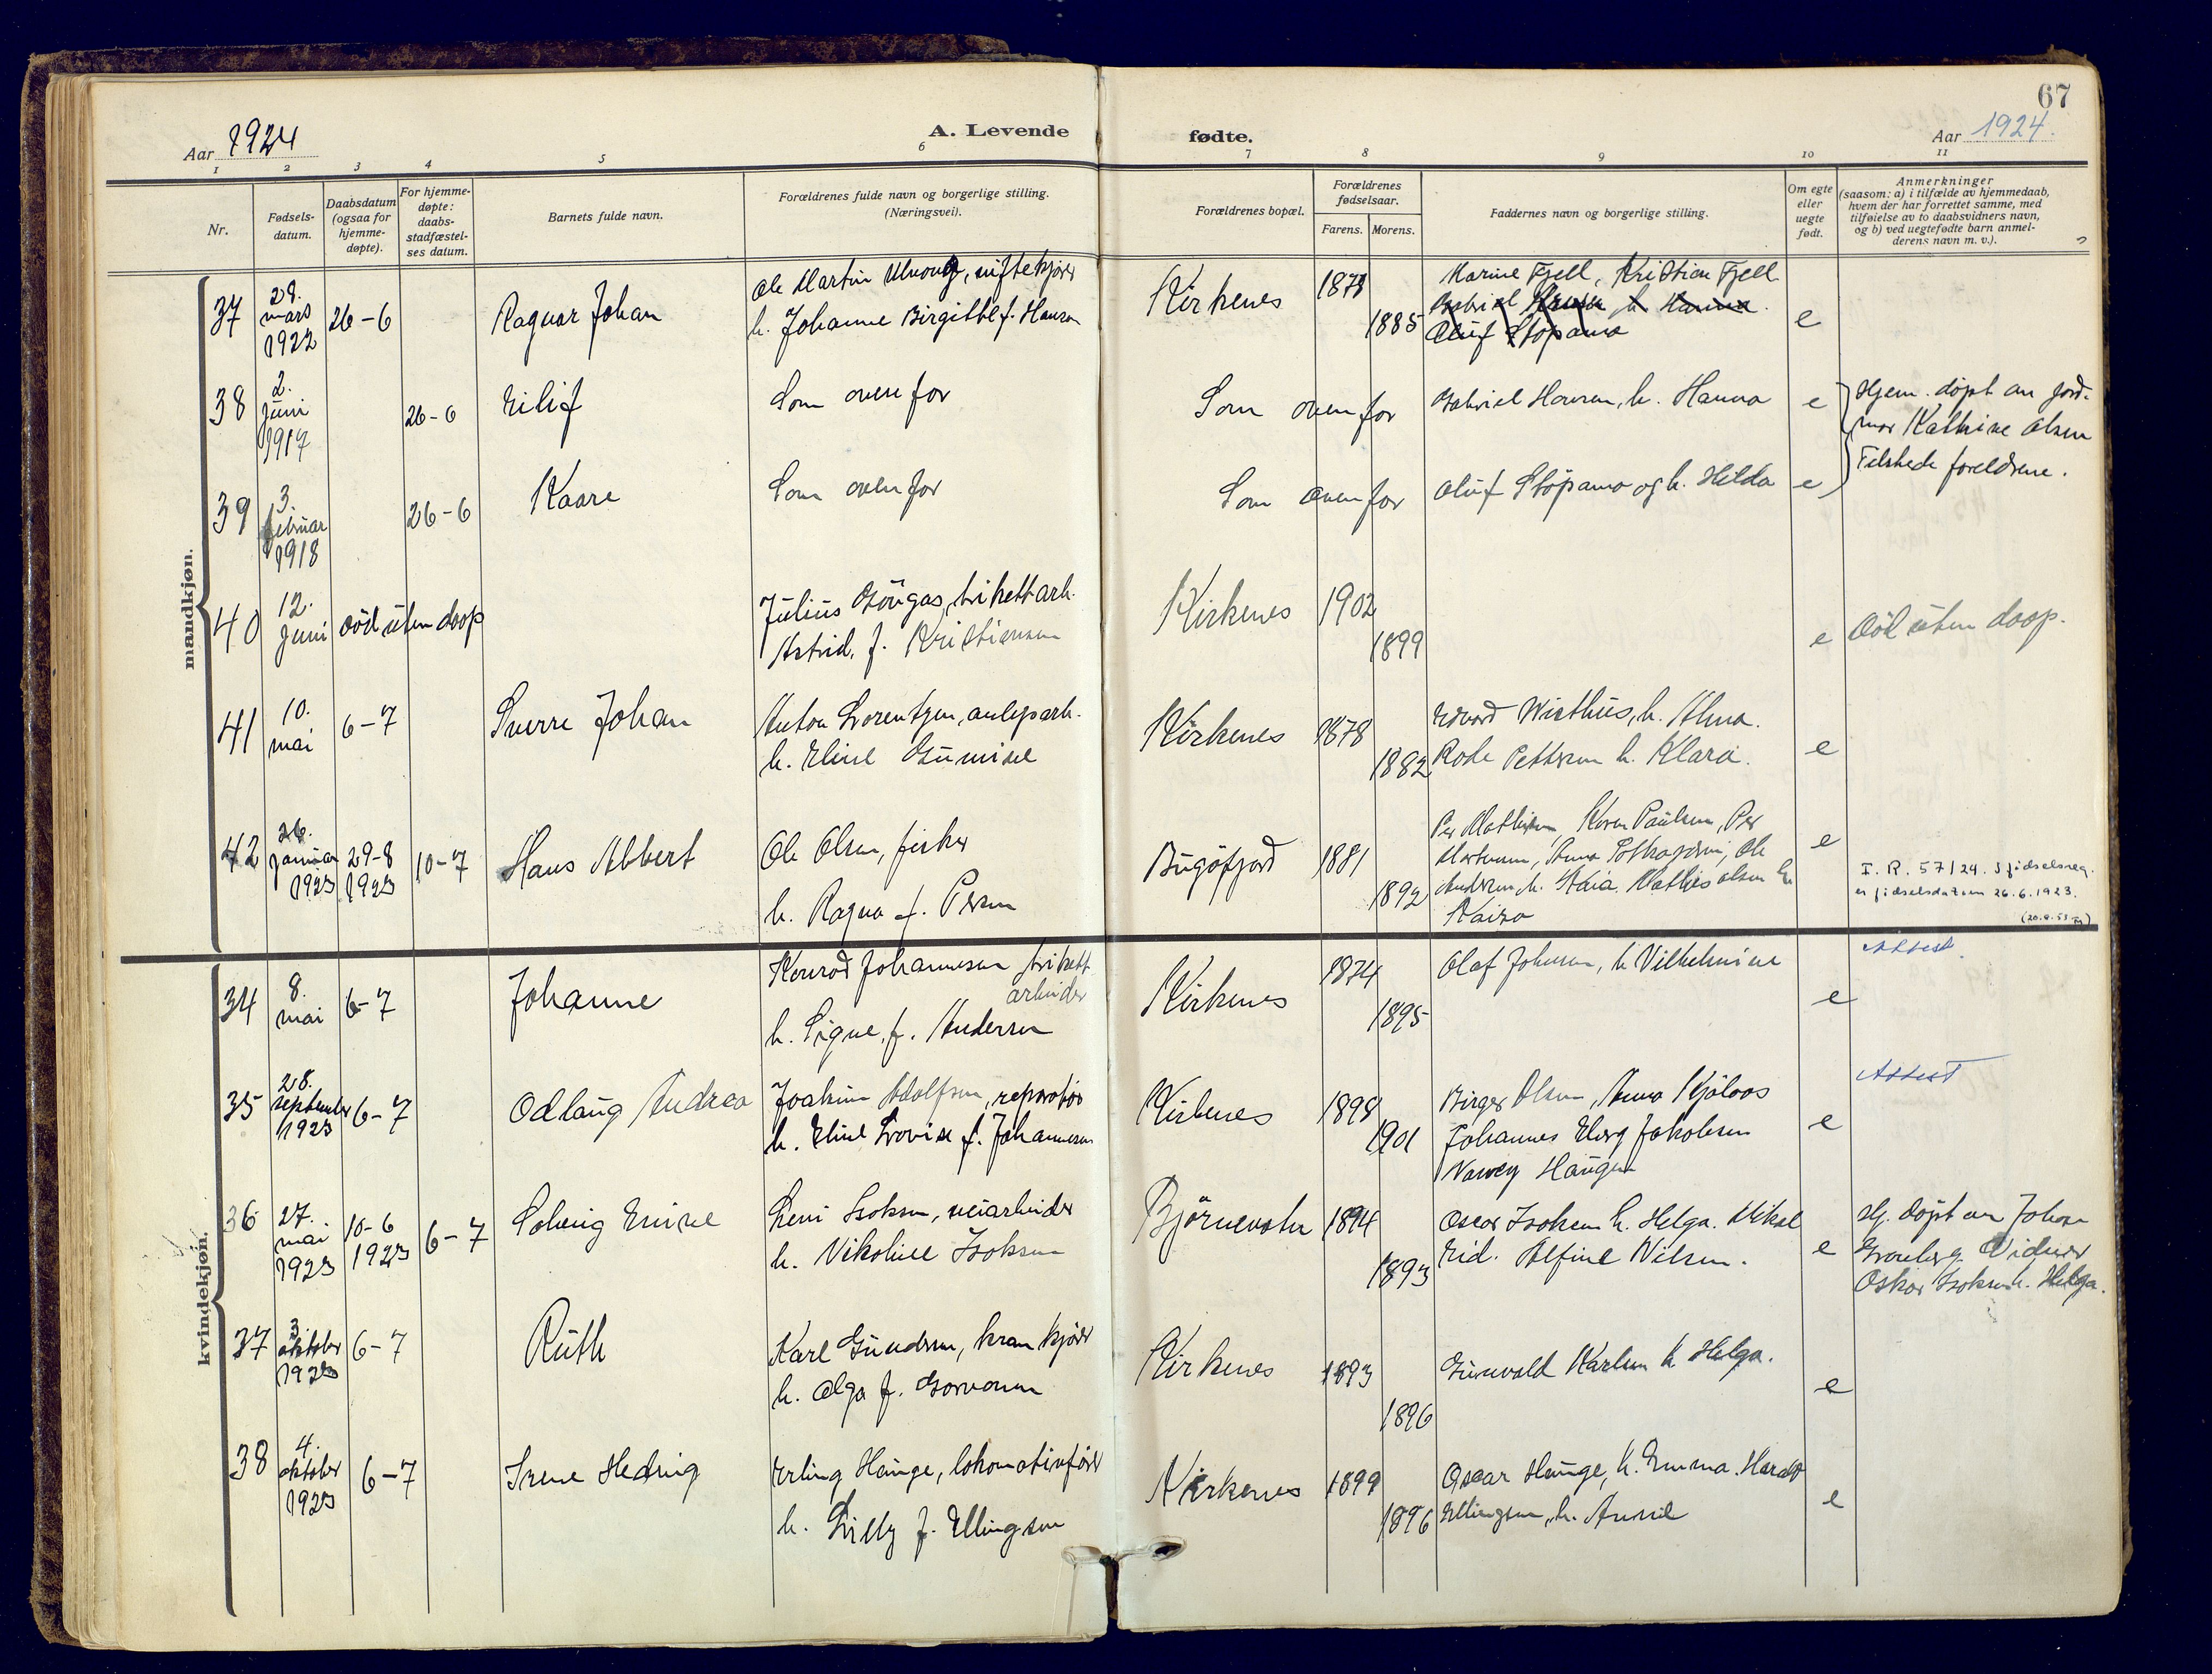 67
Aar 1924
A. Levende fødte.
Aar 1924.
1 2 3 4 5 6 7 8 9 10 11
Nr.
Fødsels-
datum.
Daabsdatum
(ogsaa for
hjemme-
døpte).
For hjemme-
døpte:
daabs-
stadfæstel-
ses datum.
Barnets fulde navn.
Forældrenes fulde navn og borgerlige stilling.
(Næringsvei).
Forældrenes bopæl.
Forældrenes
fødselsaar.
Farens. Morens.
Faddernes navn og borgerlige stilling.
Om egte
eller
uegte
født.
Anmerkninger
(saasom: a) i tilfælde av hjemmedaab,
hvem der har forrettet samme, med
tilføielse av to daabsvidners navn,
og b) ved uegtefødte barn anmel-
derens navn m. v.).
mandkjøn.
37
mars
1922
26-6
Ragnar Johan
Ole Martin
h. Johanne Birgitte f. Hansen
Kirkenes
1885
Marine Fjell, Kristian Fjell
Oluf Støpamo
e
38
2.
juni
1917
26-6
Eilif
Som ovenfor
Som ovenfor
Gabriel Hansen, h. Hanna
e
Hjem. døpt av jord-
mor Kathrine Olsen
Tilstede foreldrene.
39
3.
februar
1918
26-6
Kaare
Som ovenfor
Som ovenfor
Oluf Støpamo og h. Hilda
e
40
12.
juni
død uten daap
Julius
Astrid, f. Kristiansen
Kirkenes
1902
1899
e
Død uten daap.
41
10.
mai
6-7
Sverre Johan
Anton Lorentzen, anlegsarb.
h. Eline
Kirkenes
1878
1882
h. Alma.
Pettersen h. Klara.
e
42
26.
januar
1923
29-8
1923
10-7
Hans Albert
Ole Olsen, fisker
h. Ragna f. Persen
Bugøfjord
1881
1892
Per Mathisen, Karen Paulsen, Per
Anna
Andersen h. Kaia. Mathis Olsen h.
Kaisa
e
I. R. 57/24. I fødselsreg.
er fødselsdatum 26.6.1923.
kvindekjøn.
34
8.
mai
6-7
Johanne
Konrad Johannesen brikett
arbeider
h. Signe, f. Andersen
Kirkenes
1874
1895
Olaf Johnsen, h. Vilhelmine
e
Attest.
35
28.
september
1923
6-7
Odlaug Andrea
Joakim Adolfsen, reparatør
h. Eline Lovise f. Johannesen
Kirkenes
1898
1901
Birger Olsen, Anna
Johannes Elvrg Jakobsen
Haugen
e
Attest
36
27.
mai
1923
10-6
1923
6-7
Solveig
Isaksen, veiarbeider
h. Nikoline Isaksen
Bjørnevatn
1894
1893
Oscar Isaksen h. Helga. Mikal
Eid. Alfine Nilsen.
e
Hj. døpt av Johan
Vidner
Oskar Isaksen h. Helga.
37
3.
oktober
1923
6-7
Ruth
Karl Gundersen, krankjører
h. Olga f.
Kirkenes
1893
1896
Gunvald Karlsen h. Helga.
e
38
4.
oktober
1923
6-7
Irene Hedvig
Erling Hauge, lokomotivfører
h. Lilly f. Ellingsen
Kirkenes
1899
1896
Oscar Hauge, h. Emma. Harald
Ellingsen, h.
e